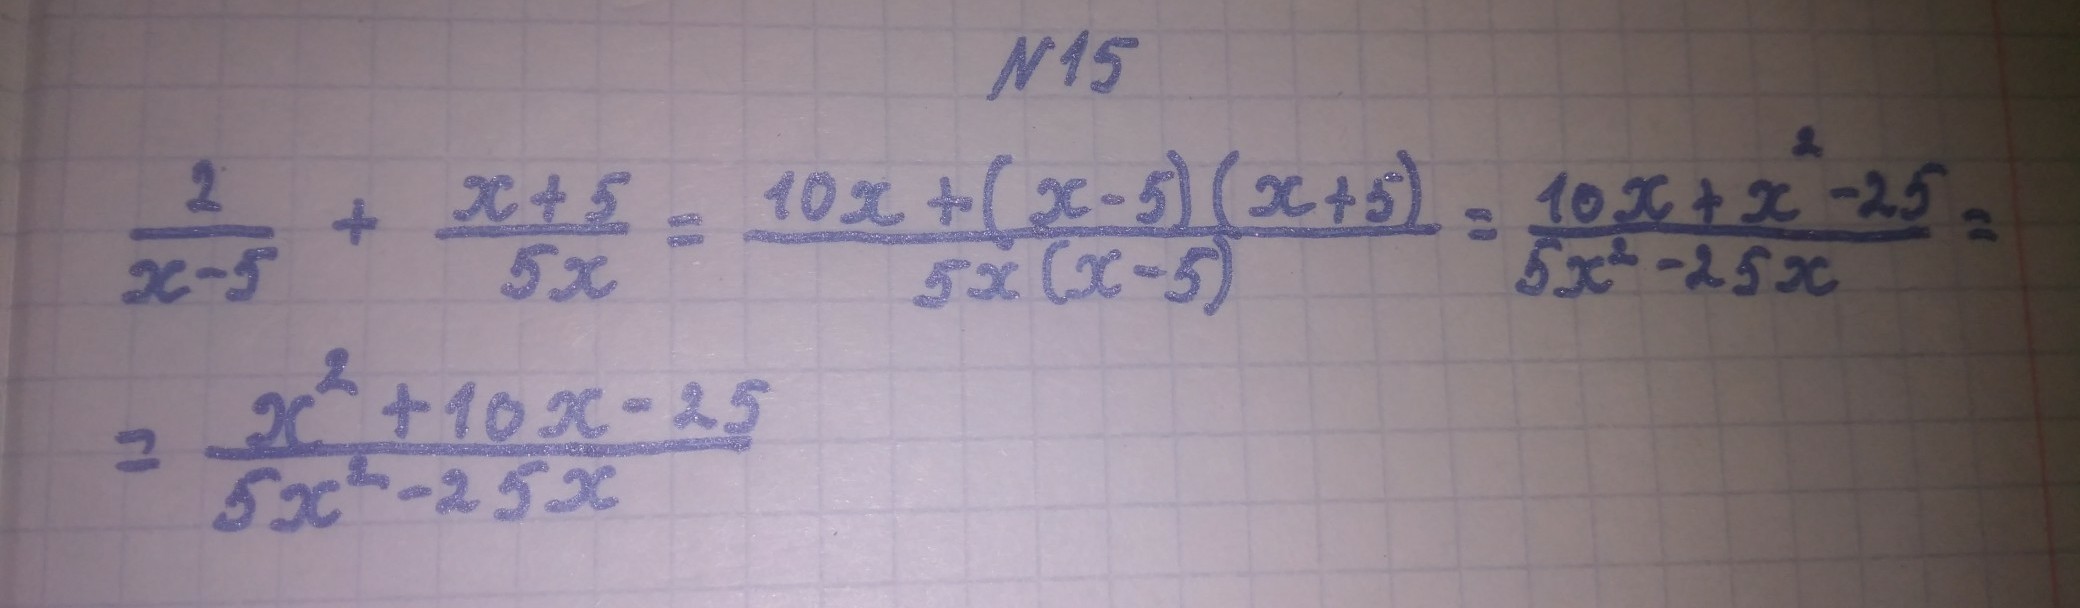 N15
2/(x-5) + (x+5)/(5x) = (10x+(x-5)(x+5))/(5x(x-5)) = (10x+x²-25)/(5x²-25x) =
= (x²+10x-25)/(5x²-25x)